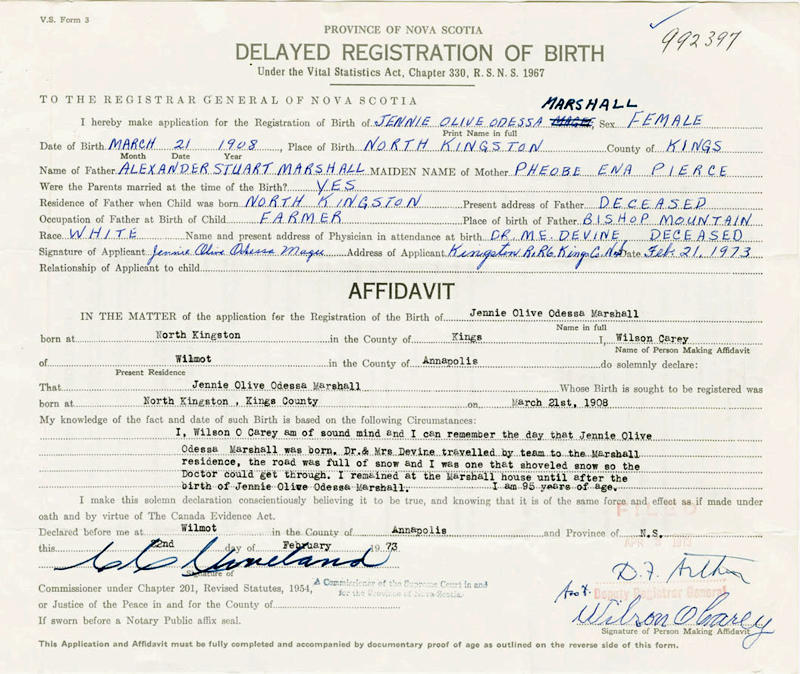 V.S. Form 3
PROVINCE OF NOVA SCOTIA
992397
DELAYED REGISTRATION OF BIRTH
Under the Vital Statistics Act, Chapter 330, R.S.N.S. 1967
TO THE REGISTRAR GENERAL OF NOVA SCOTIA
MARSHALL
I hereby make application for the Registration of Birth of JENNIE OLIVE ODESSA MAGEE, Sex FEMALE
Print Name in full
Date of Birth MARCH 21 1908, Place of Birth NORTH KINGSTON County of KINGS
Month Date Year
Name of Father ALEXANDER STUART MARSHALL MAIDEN NAME of Mother PHEOBE ENA PIERCE
Were the Parents married at the time of the Birth? YES
Residence of Father when Child was born NORTH KINGSTON Present address of Father DECEASED
Occupation of Father at Birth of Child FARMER Place of birth of Father BISHOP MOUNTAIN
Race WHITE Name and present address of Physician in attendance at birth DR. M.E. DEVINE DECEASED
Signature of Applicant Jennie Olive Odessa Magee Address of Applicant Kingston R.R6 Kings C. N.S Date Feb 21, 1973
Relationship of Applicant to child
AFFIDAVIT
IN THE MATTER of the application for the Registration of the Birth of Jennie Olive Odessa Marshall
Name in full
born at North Kingston in the County of Kings I, Wilson Carey
Name of Person Making Affidavit
of Wilmot in the County of Annapolis do solemnly declare:
Present Residence
That Jennie Olive Odessa Marshall Whose Birth is sought to be registered was
born at North Kingston , Kings County on March 21st, 1908
My knowledge of the fact and date of such Birth is based on the following Circumstances:
I, Wilson O Carey am of sound mind and I can remember the day that Jennie Olive
Odessa Marshall was born. Dr.& Mrs Devine travelled by team to the Marshall
residence, the road was full of snow and I was one that shoveled snow so the
Doctor could get through. I remained at the Marshall house until after the
birth of Jennie Olive Odessa Marshall. I am 95 years of age.
I make this solemn declaration conscientiously believing it to be true, and knowing that it is of the same force and effect as if made under
oath and by virtue of The Canada Evidence Act.
FILED
Declared before me at Wilmot in the County of Annapolis and Province of N.S.
this 22nd day of February 1973
APR
Signature of
D. F. Arthur
A Commissioner of the Supreme Court in and
for the Province of Nova Scotia
Commissioner under Chapter 201, Revised Statutes, 1954,
Deputy Registrar General
or Justice of the Peace in and for the County of
Wilson O Carey
Signature of Person Making Affidavit
If sworn before a Notary Public affix seal.
This Application and Affidavit must be fully completed and accompanied by documentary proof of age as outlined on the reverse side of this form.